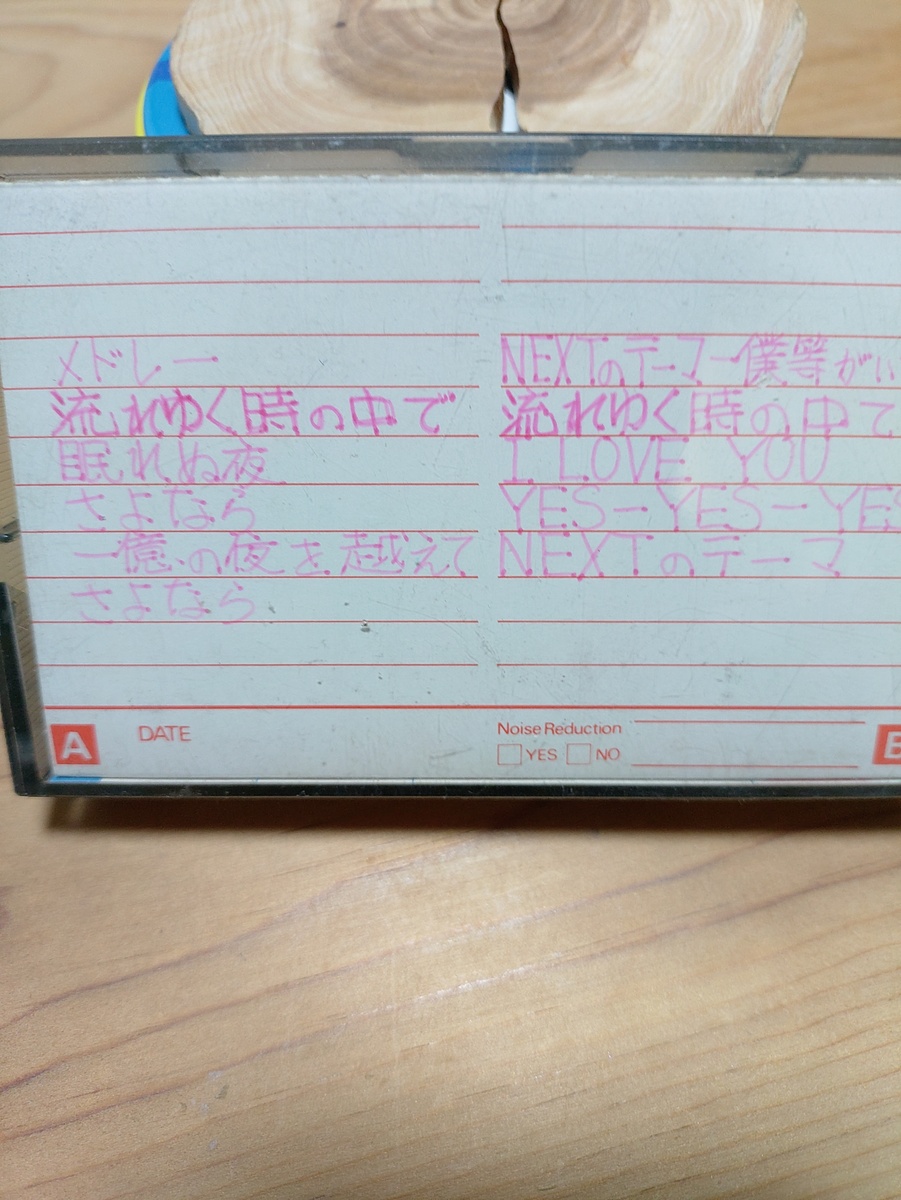 メドレー
流れゆく時の中で
眠れぬ夜
さよなら
一億の夜を越えて
さよなら
NEXTのテーマー僕等がい
流れゆく時の中で
I LOVE YOU
YES－YES－YES
NEXTのテーマ
A DATE
Noise Reduction
YES NO
B